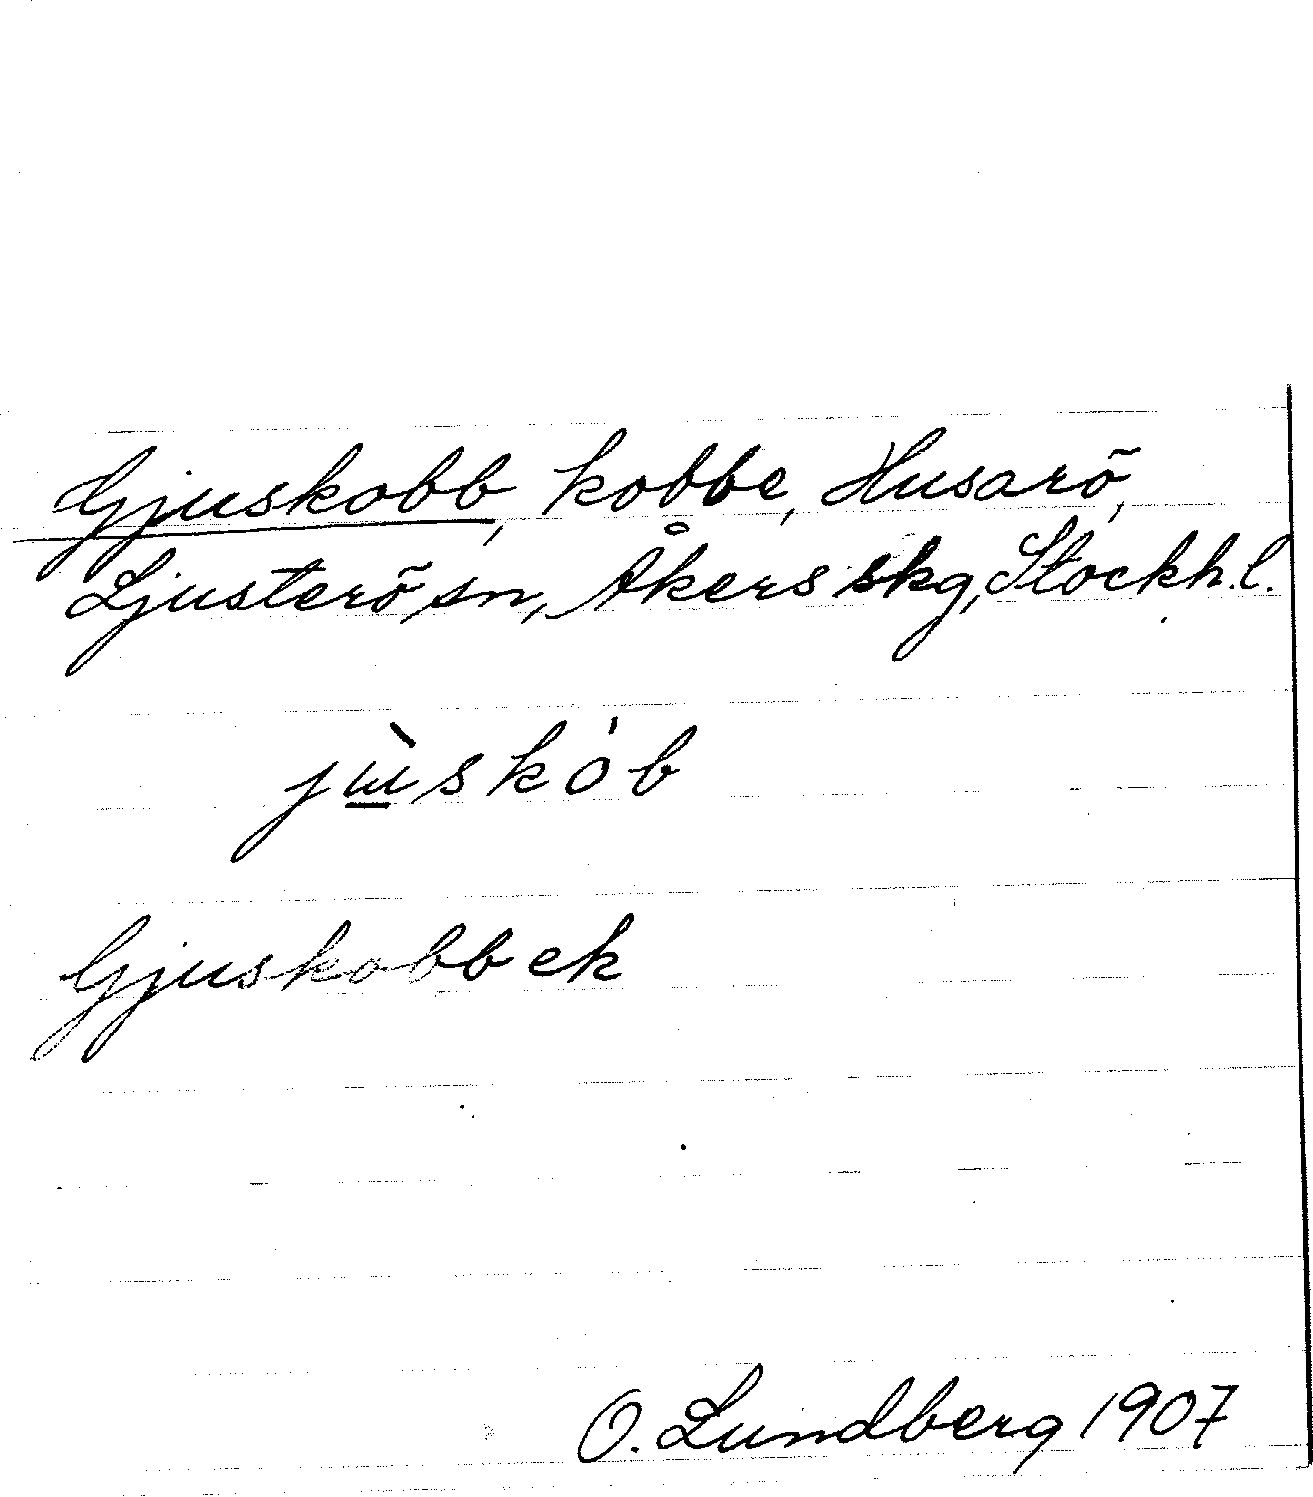 Gjuskobb, kobbe, Husarö,
Ljusterö sn, Åkers skg, Stockh. l.
jɯ̲̀skób
Gjuskobb ek
O. Lundberg 1907